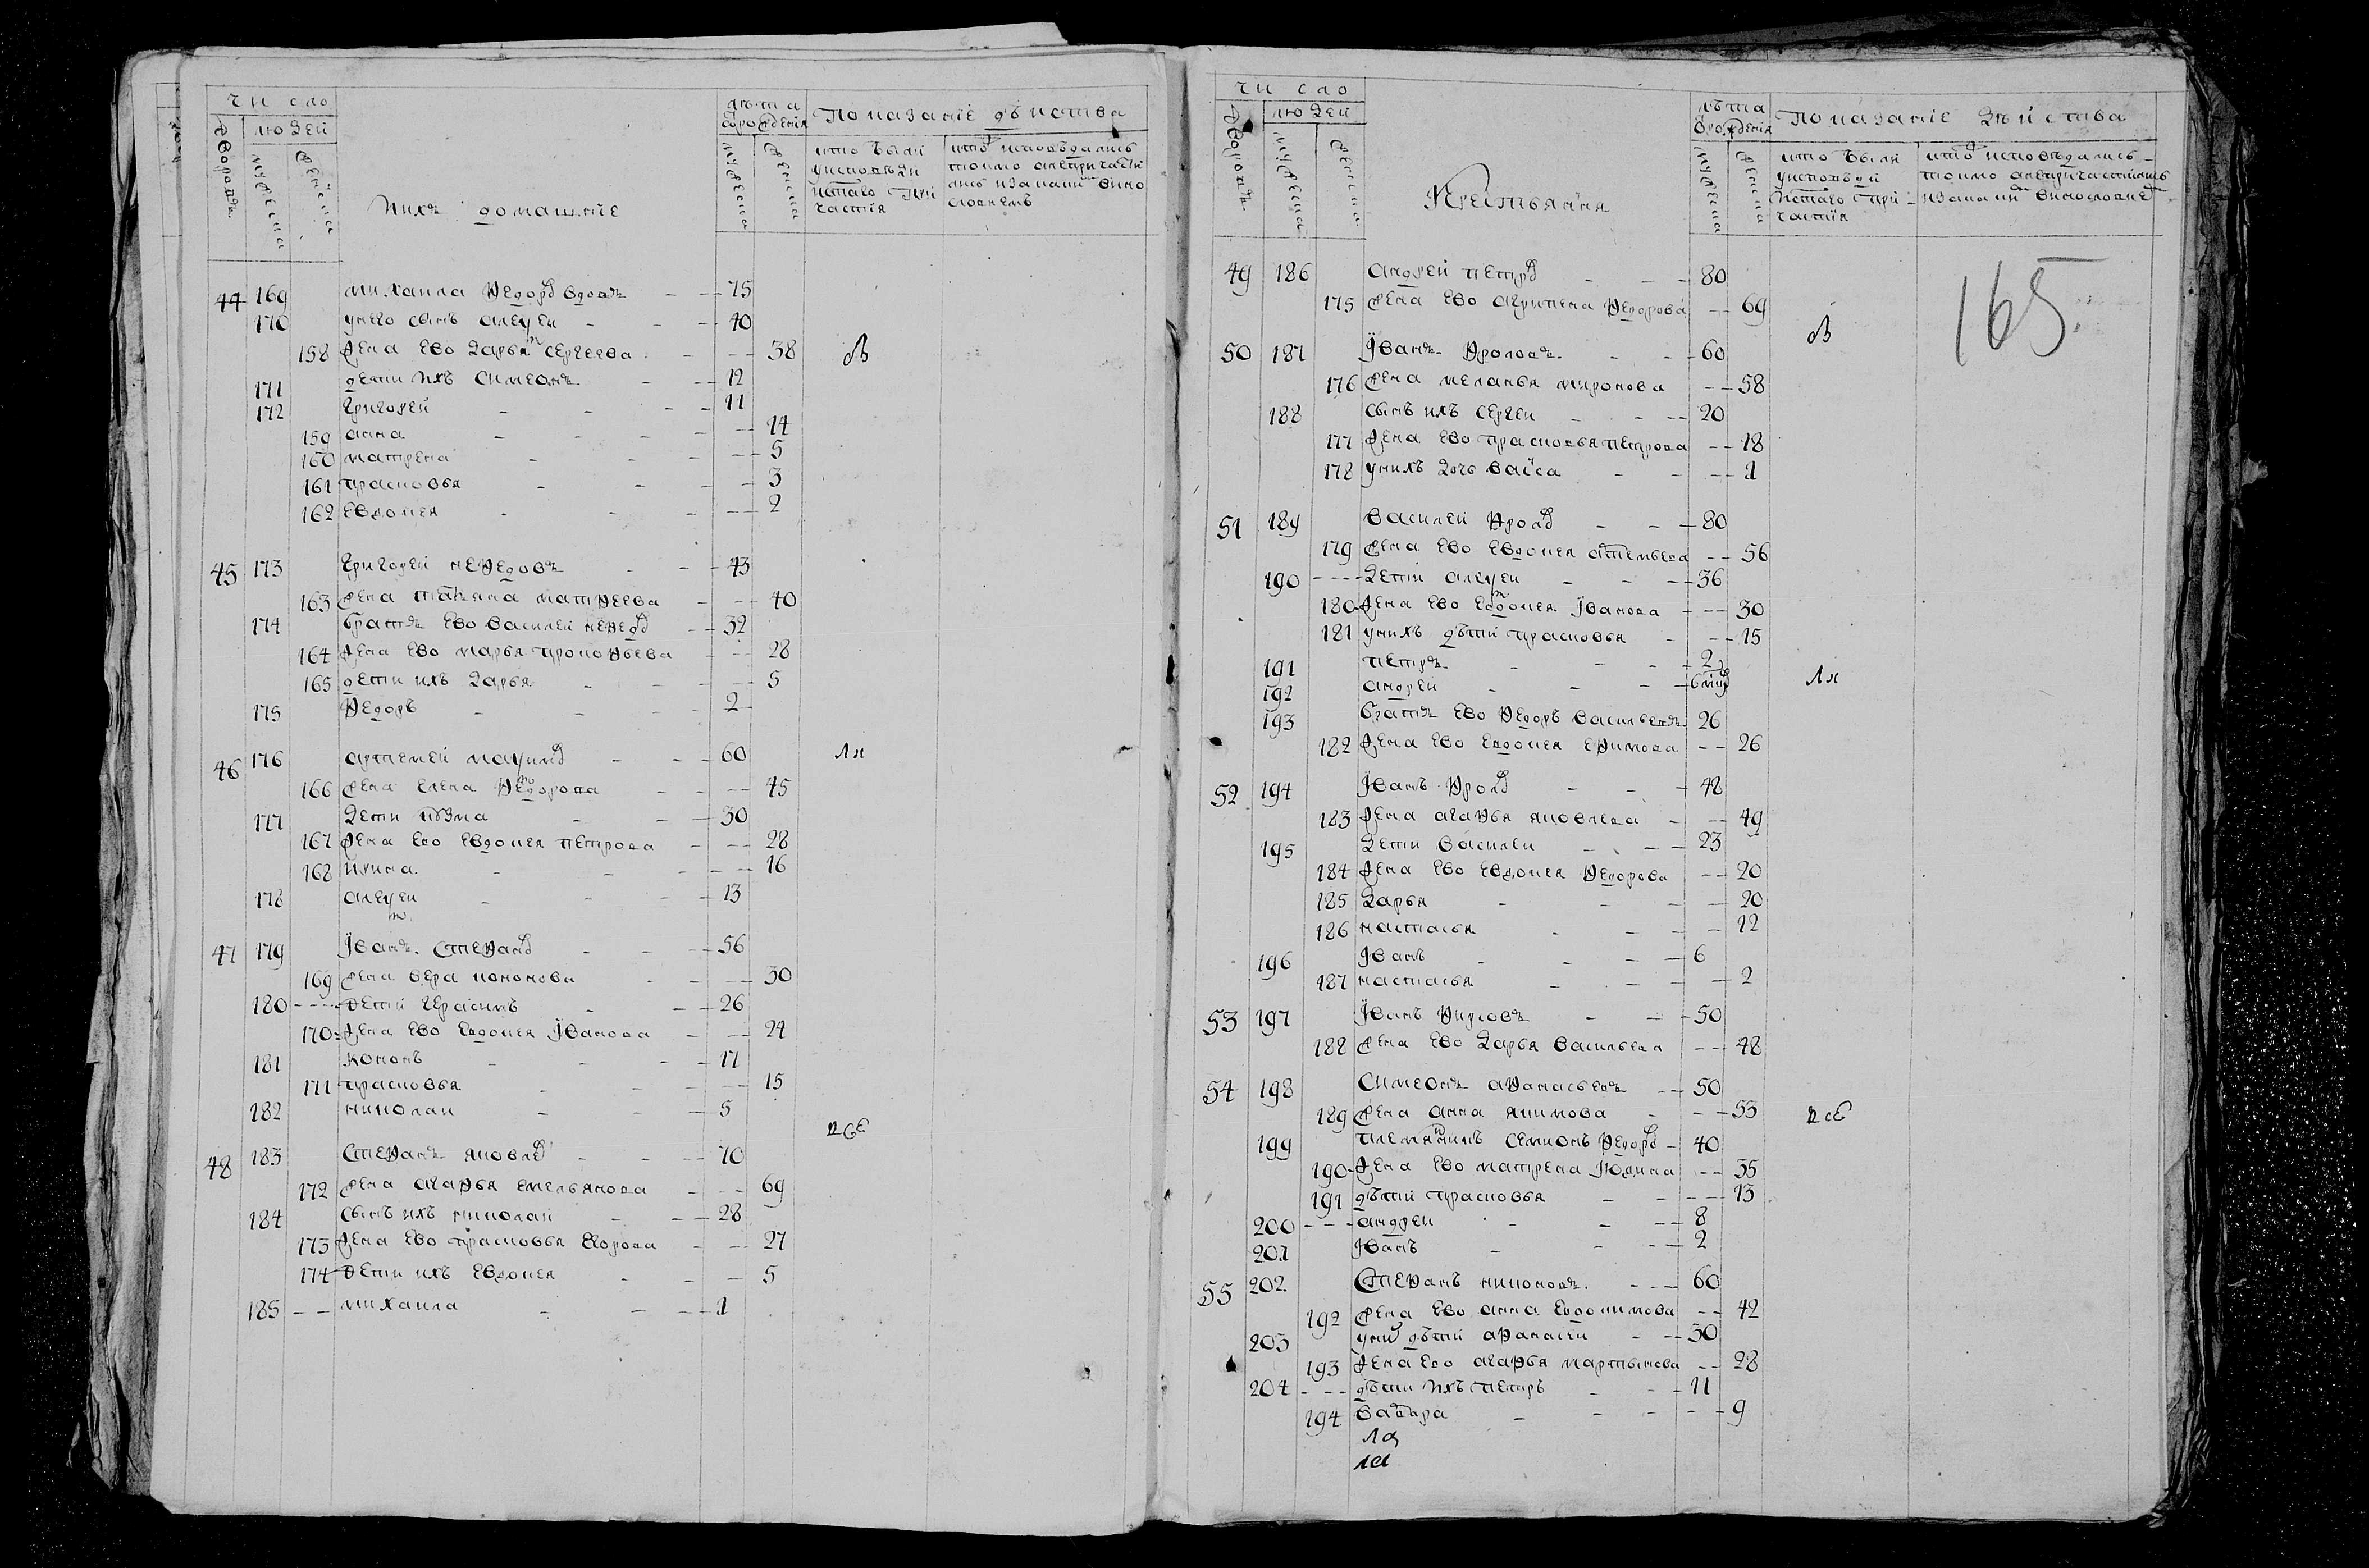 число
людей
дворовъ
мужеска
женска
ихъ домашніе
лѣта
ѿ рожденія
мужеска
женска
Показаніе дѣиства
кто были
уисповѣди
істаго при
частія
кто исповѣдались
токмо анепричасти
лись изакаким винο
словиемъ
44 169 михаила Федоров вдовъ 75
170 унего сынъ алеѯеи 40
158 жена ево дарья сергеева 38
171 дети ихъ симеонъ 12
172 григореи 11
159 анна 14
160 матрена 5
161 прасковья 3
162 евдокея 2
45 173 григореи неѳедовъ 43
163 жена татияна матѳеева 40
174 братъ ево василеи неѳедов 32
164 жена ево марья прокоѳьева 28
165 дети ихъ дарья 5
175 Федоръ 2
46 176 артемеи маѯимов 60
166 жена елена Федорова 45
177 дети козма 30
167 жена ево евдокея петрова 28
168 ирина 16
178 алеѯеи 13
47 179 Іванъ Стеѳанов 56
169 жена вера кононова 30
180 дети герасимъ 26
170 жена ево евдокея Іванова 24
181 кононъ 17
171 прасковья 15
182 николаи 5
48 183 Стеѳанъ яковлев 70
172 жена агаѳья емельянова 69
184 сынъ ихъ николаи 28
173 жена ево прасковья егорова 27
174 дети ихъ евдокея 5
185 михаила 1
все
число
людей
дворовъ
мужеска
женска
Крестьяня
лѣта
ѿ рожденія
мужеска
женска
Показаніе дѣиства
кто были
уисповѣди
істаго при
частія
кто исповѣдались
токмо анепричастились
изакаким винословие
165
49 186 андреи петров 80
175 жена ево агрипена Федорова 69
50 187 Іванъ Фроловъ 60
176 жена меланья миронова 58
188 сынъ ихъ сергеи 20
177 жена ево прасковья петрова 18
178 унихъ дочь васса 1
51 189 василеи Фролов 80
179 жена ево евдокея 56
190 дети алеѯеи 36
180 жена ево евдокея Іванова 30
181 унихъ дѣти прасковья 15
191 петръ 2
192 андреи 6
193 братъ ево Федоръ васильевъ 26
182 жена ево евдокея еѳимова 26
52 194 Іванъ Фролов 48
183 жена агаѳья яковлева 49
195 дети василеи 23
184 жена ево евдокея Федорова 20
185 дарья 20
186 настасья 12
196 Іванъ 6
187 настасья 2
53 197 Іванъ Фирсовъ 50
188 жена ево дарья васильева 48
54 198 Симеонъ аѳанасьевъ 50
189 жена анна якимова 55
199 племянникъ семионъ Федоров 40
190 жена ево матрена 35
191 дѣти прасковья 13
200 андреи 8
201 Іванъ 2
все
55 202 Стеѳанъ никоновъ 60
192 жена ево анна евдокимова 42
203 уних дѣти аѳанасеи 30
193 жена ево агаѳья мартынова 28
204 дѣти ихъ петръ 11
194 вавара 9